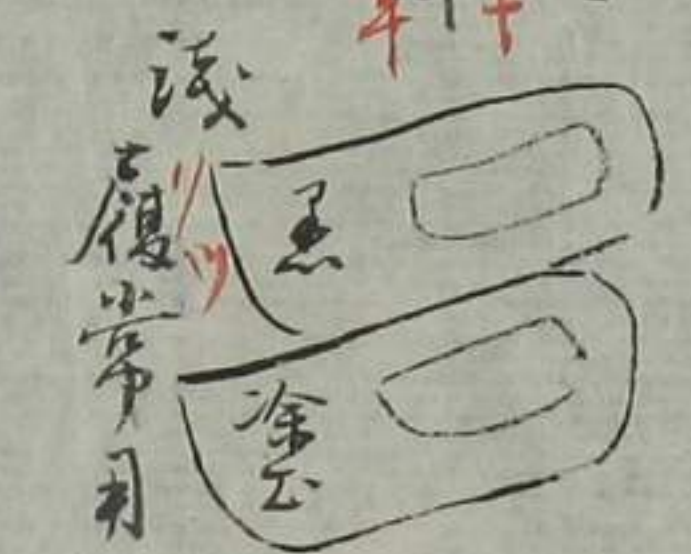 淺履常用
黒
塗